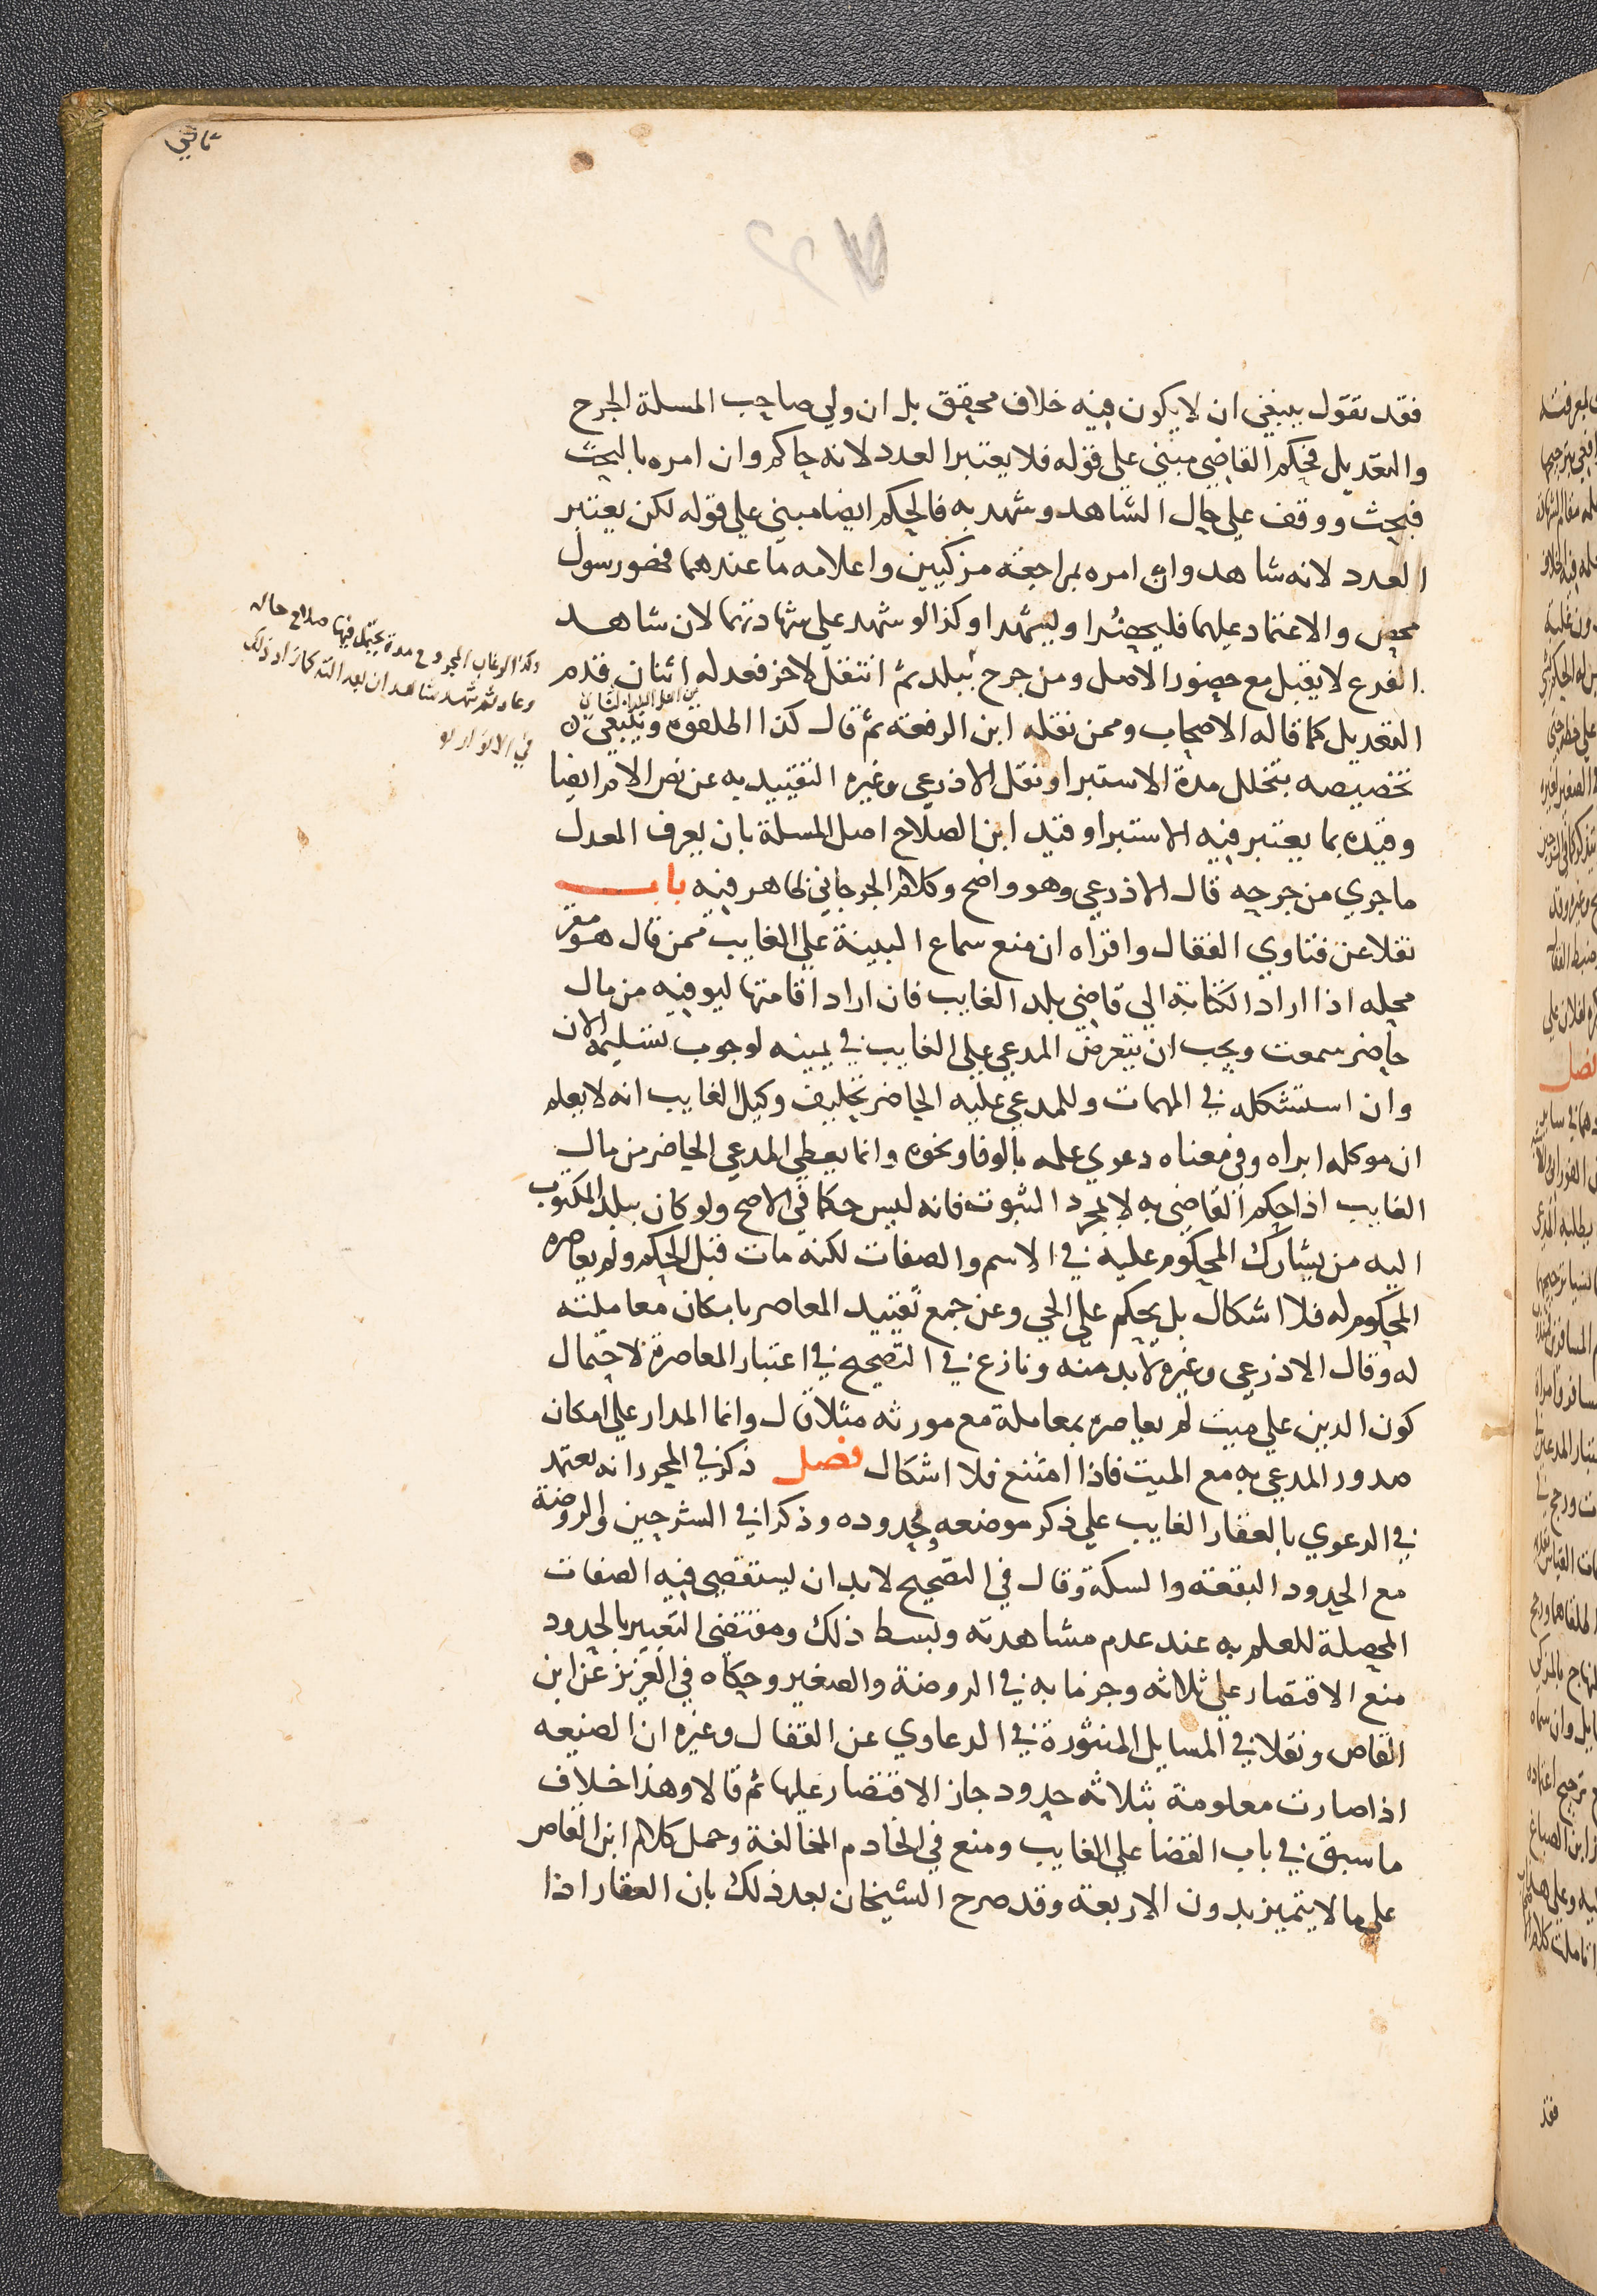 ثاني
فقد تقول ينبغي ان لا يكون فيه خلاف محقق بل ان ولي صاحب المسلة الجرح
والتعديل فحكم القاضي مبني على قوله فلا يعتبر العدد لانه حاكم وان امره بالبحث
فبحث ووقف على حال الشاهد وشهد به فالحكم ايضا مبني على قوله لكن يعتبر
العدد لانه شاهد وان امره بمراجعة مزكيين واعلامه ما عندهما فهو رسول
محض والاعتماد عليهما فليحضرا وليشهدا وكذا لو شهد على شهادتهما لان شاهد
الفرع لا يقبل مع حضور الاصل ومن جرح ببلد ثم انتقل لاخر فعدله اثنان قدم
من اهل البلد الثاني
التعديل كما قاله الاصحاب وممن نقله ابن الرفعة ثم قال كذا اطلقوه وينبغي
تخصيصه بتخلل مدة الاستبرا ونقل الاذرعي وغيره التقييد به عن نص الام ايضا
وقيده بما يعتبر فيه الاستبرا وقيد ابن الصلاح اصل المسلة بان يعرف المعدل
ما جرى من جرحه قال الاذرعي وهو واضح وكلام الجرجاني ظاهر فيه باب
نقلا عن فتاوي القفال واقراه ان منع سماع البينة على الغايب ممن قال هو مقر
محله اذا اراد الكتابة الي قاضي بلد الغايب فان اراد اقامتها ليوفيه من مال
حاضر سمعت ويجب ان يتعرض المدعي على الغايب في يمينه لوجوب تسليمه الان
وان استشكله في المهمات وللمدعي عليه الحاضر تحليف وكيل الغايب انه لا يعلم
ان موكله ابراه وفي معناه دعوي علمه بالوفا ونحوه وانما يعطي المدعي الحاضر من مال
الغايب اذا حكم القاضي به لا بمجرد الثبوت فانه ليس حكما في الاصح ولو كان ببلد المكتوب
اليه من يشارك المحكوم عليه في الاسم والصفات لكنه مات قبل الحكم ولم يعاصره
المحكوم له فلا اشكال بل يحكم على الحي وعن جمع تقييد المعاصر بامكان معاملته
له وقال الاذرعي وغيره لا بد منه ونازع في التصحيح في اعتبار المعاصرة لاحتمال
كون الدين على ميت لم يعاصره بمعاملة مع مورثه مثلا قال وانما المدار على امكان
صدور المدعي به مع الميت فاذا امتنع فلا اشكال فصل ذكر في المحرر انه يعتمد
في الدعوي بالعقار الغايب على ذكر موضعه وحدوده وذكرا في الشرحين والروضة
مع الحدود البقعة والسكة وقال في التصحيح لا بد ان يستقصى فيه الصفات
المحصلة للعلم به عند عدم مشاهدته وبسط ذلك ومقتضى التعبير بالحدود
منع الاقتصار على ثلاثه وجزما به في الروضة والصغير وحكاه في العزيز عن ابن
القاص ونقلا في المسايل المنثورة في الدعاوي عن القفال وغيره ان الضيعه
اذا صارت معلومة بثلاثه حدود جاز الاقتصار عليها ثم قالا وهذا خلاف
ما سبق في باب القضا على الغايب ومنع في الخادم المخالفة وحمل كلام ابن القاص
على ما لا يتميز بدون الاربعة وقد صرح الشيخان بعد ذلك بان العقار اذا
وكذا لو غاب المجروح مدة يحتمل فيها صلاح حاله
وعاد ثم شهد شاهدان بعدالته كما زاد ذلك
في الانوار